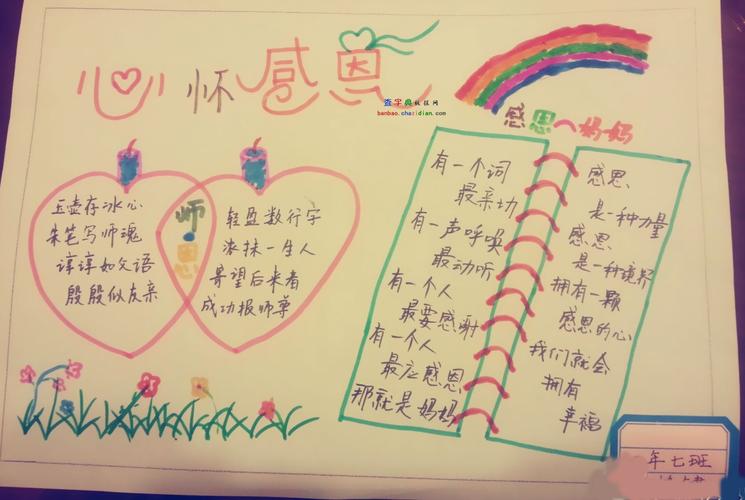 心怀感恩
查字典板报网
banbao.chazidian.com
感恩~妈妈
玉壶存冰心
朱笔写师魂
谆谆如父语
殷殷似友亲
师恩
轻盈数行字
浓抹一生人
寄望后来者
成功报师尊
有一个词
最亲切
有一声呼唤
最动听
有一个人
最要感谢
有一个人
最应感恩
那就是妈妈
感恩
是一种力量
感恩
是一种境界
拥有一颗
感恩的心
我们就会
拥有
幸福
年七班